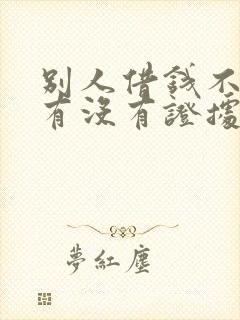 別人借錢不
有沒有證據
夢紅塵